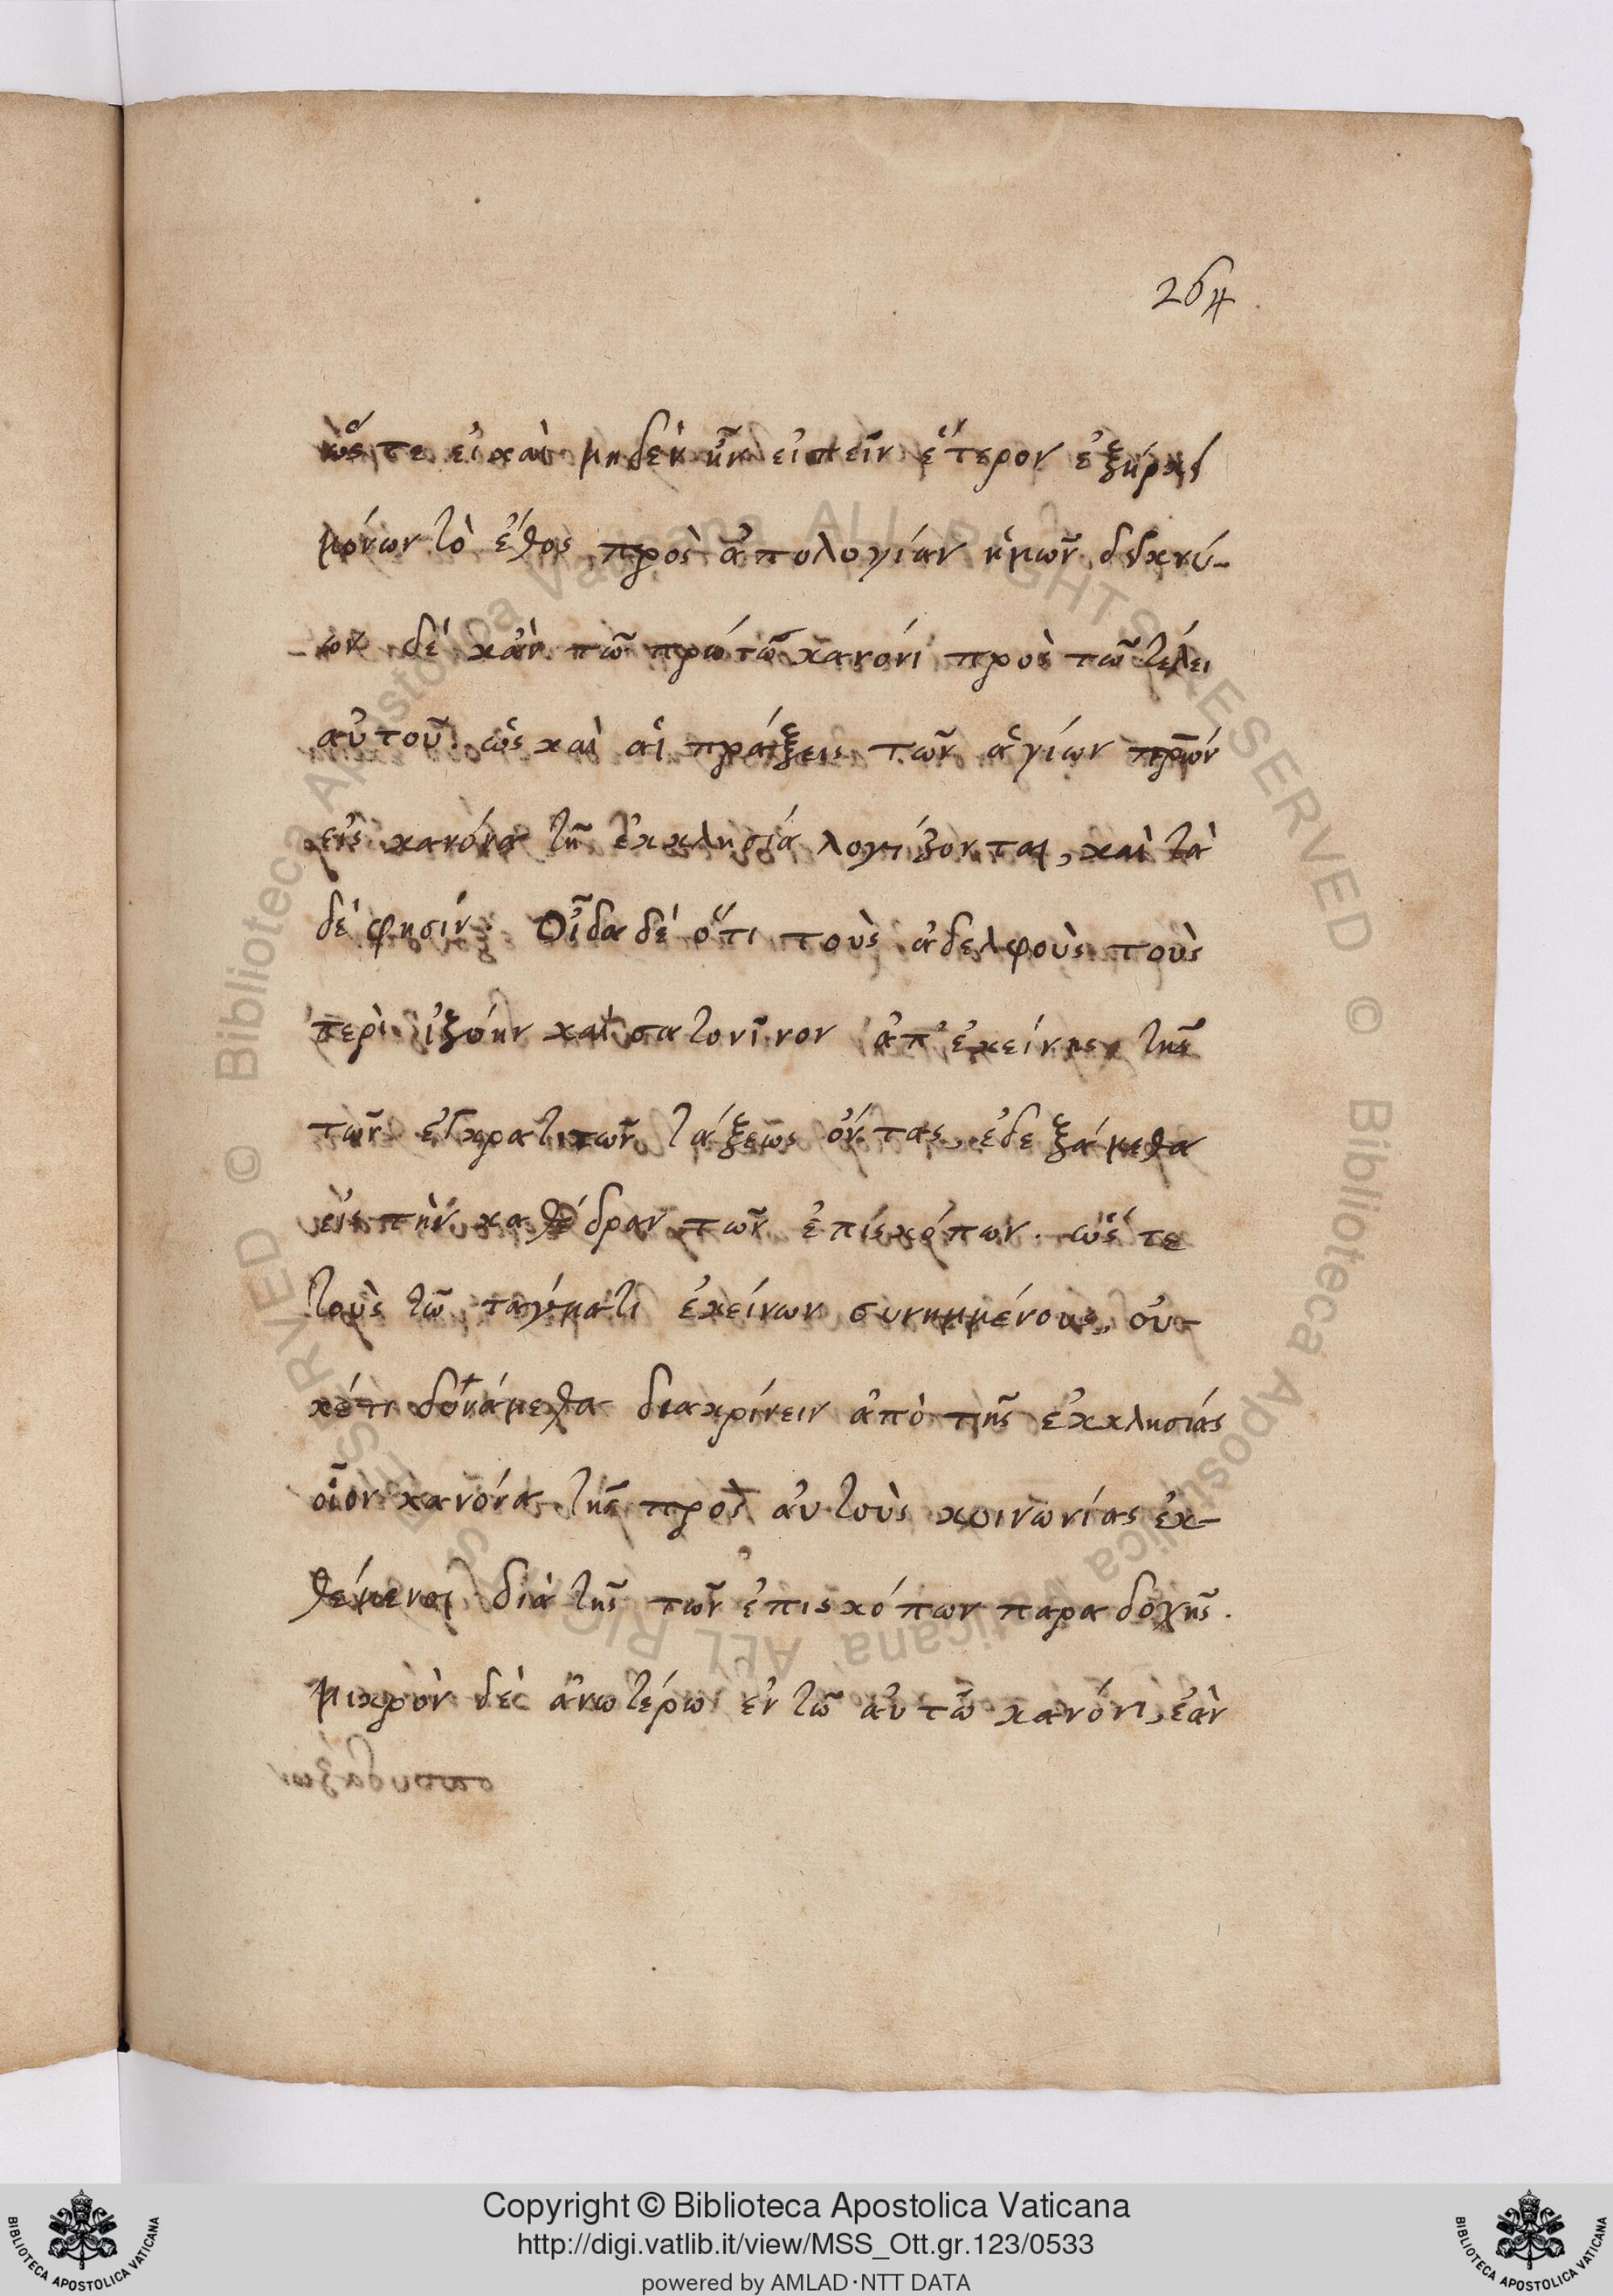 264
ὥστε εἰ καὶ μηδὲν ἦν εἰπεῖν ἕτερον ἐξήρκει
μόνων τὸ ἔθος πρὸς ἀπολογίαν ἡμῶν δεικνύ-
ων δὲ κἀν τῶ πρώτω κανόνι πρὸς τῶ τέλει
αὐτοῦ. ὡς καὶ αἱ πράξεις τῶν ἁγίων πρῶν
εἰς κανόνα τῆ ἐκκλησία λογίζονται, καὶ τὰ
δὲ φησιν: Οἶδα δὲ ὅτι τοὺς ἀδελφοὺς τοὺς
περὶ ἰζόην καὶ σατονῖνον ἀπ' ἐκείνης τῆς
τῶν ἐγκρατιτῶν τάξεως ὄντας, ἐδεξάμεθα
εἰς τὴν καθέδραν τῶν ἐπισκόπων. ὥστε
τοὺς τῶ ταγματι ἐκείνων συνημμένους, οὐ-
κέτι δυνάμεθα διακρίνειν ἀπὸ τῆς ἐκκλησίας
οἷον κανόνα τῆς πρὸς αὐτοὺς κοινωνίας ἐκ-
θέμενοι διὰ τῆς τῶν ἐπισκόπων παραδοχῆς.
μικρὸν δὲ ἀνωτέρω ἐν τῶ αὐτῶ κανόνι, ἐὰν
Copyright © Biblioteca Apostolica Vaticana
http://digi.vatlib.it/view/MSS_Ott.gr.123/0533
powered by AMLAD·NTT DATA
BIBLIOTECA APOSTOLICA VATICANA
BIBLIOTECA APOSTOLICA VATICANA
© Biblioteca Apostolica Vaticana ALL RIGHTS RESERVED
© Biblioteca Apostolica Vaticana ALL RIGHTS RESERVED